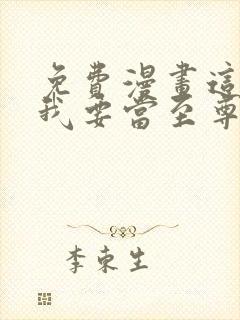 免費漫畫這
我要當至尊
李東生